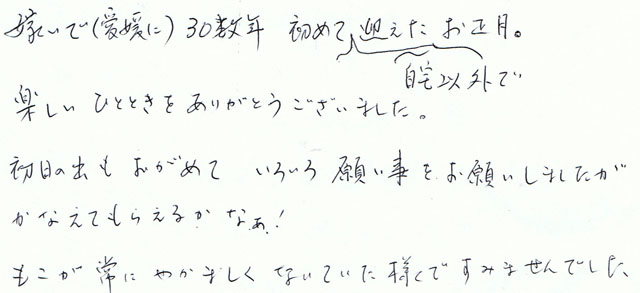 嫁いで(愛媛に)30数年 初めて迎えた お正月。
自宅以外で
楽しい ひとときを ありがとう ございました。
初日の出も おがめて いろいろ 願い事を お願いしましたが
かなえてもらえるか なぁ!
もこが 常に やかましく ないていた 様で すみませんでした